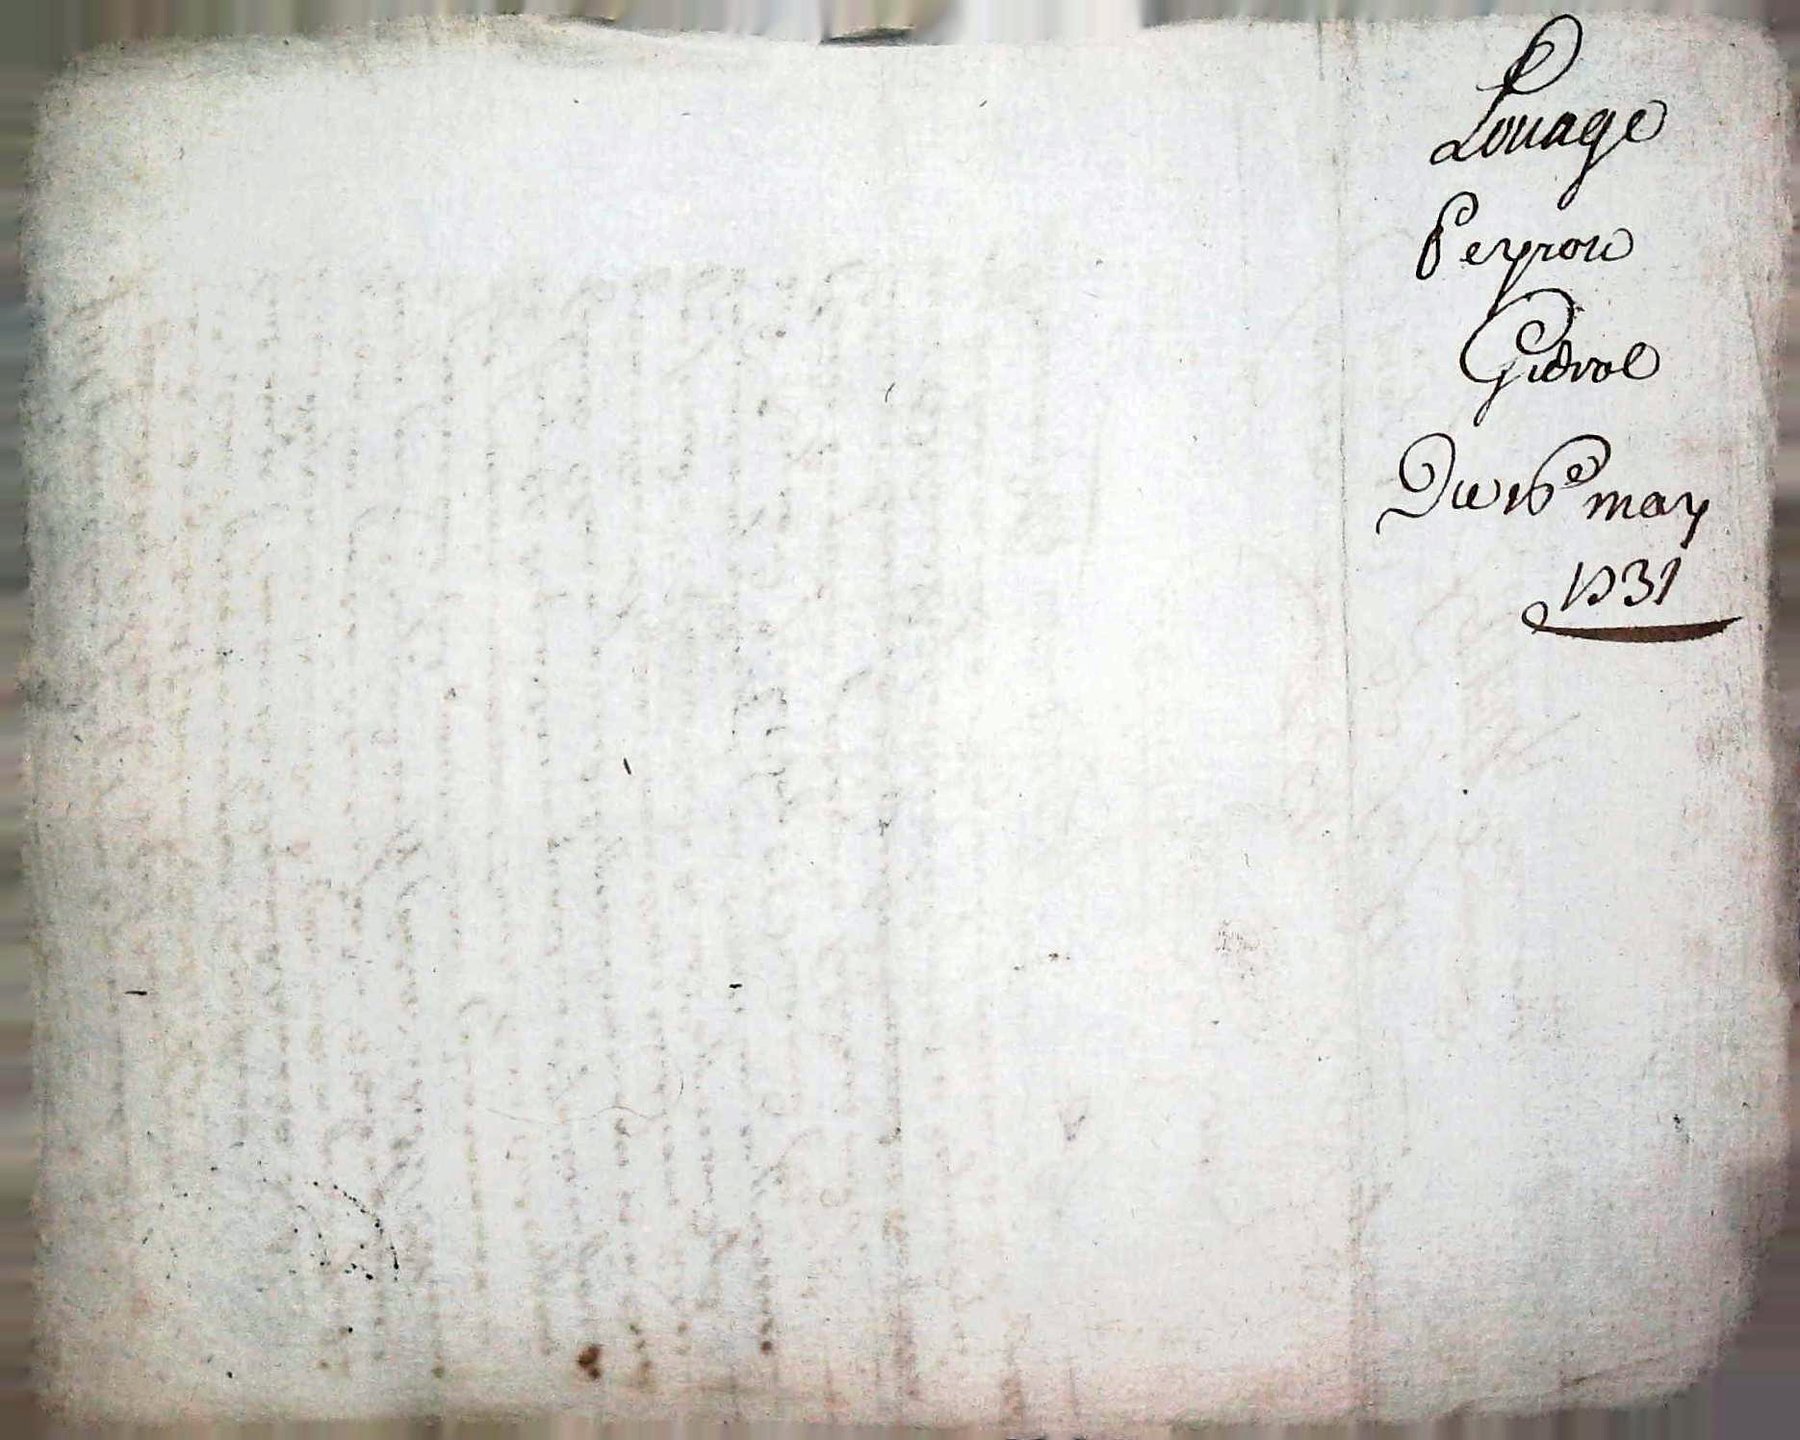 Louage
Peyron
Gidrol
Du 16e may
1731